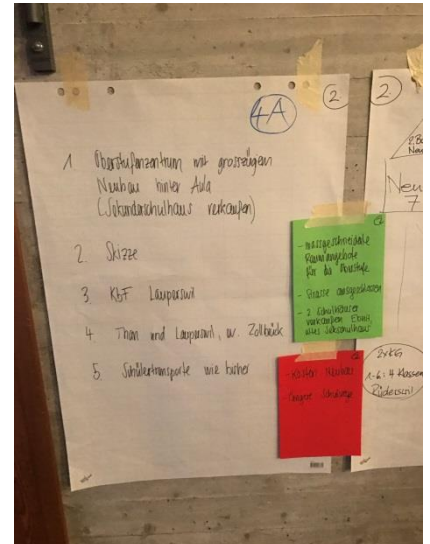 4A
2
1 Oberstufenzentrum mit grosszügem
Neubau hinter Aula
(Sekundarschulhaus verkaufen)
2. Skizze
3 KbF Lauperswil
4 Than und Lauperswil, ev. Zollbrück
5. Schülertransporte wie bisher
- massgeschneiderte
Raumangebote
für die Oberstufe
- Strasse ausgeschlossen
- 2 Schulhäuser
verkaufen
altes Sekschulhaus
- Kosten Neubau
- längere Schulwege
2.
Neu
7
2xKG
1-6: 4 Klassen
Rüderswil